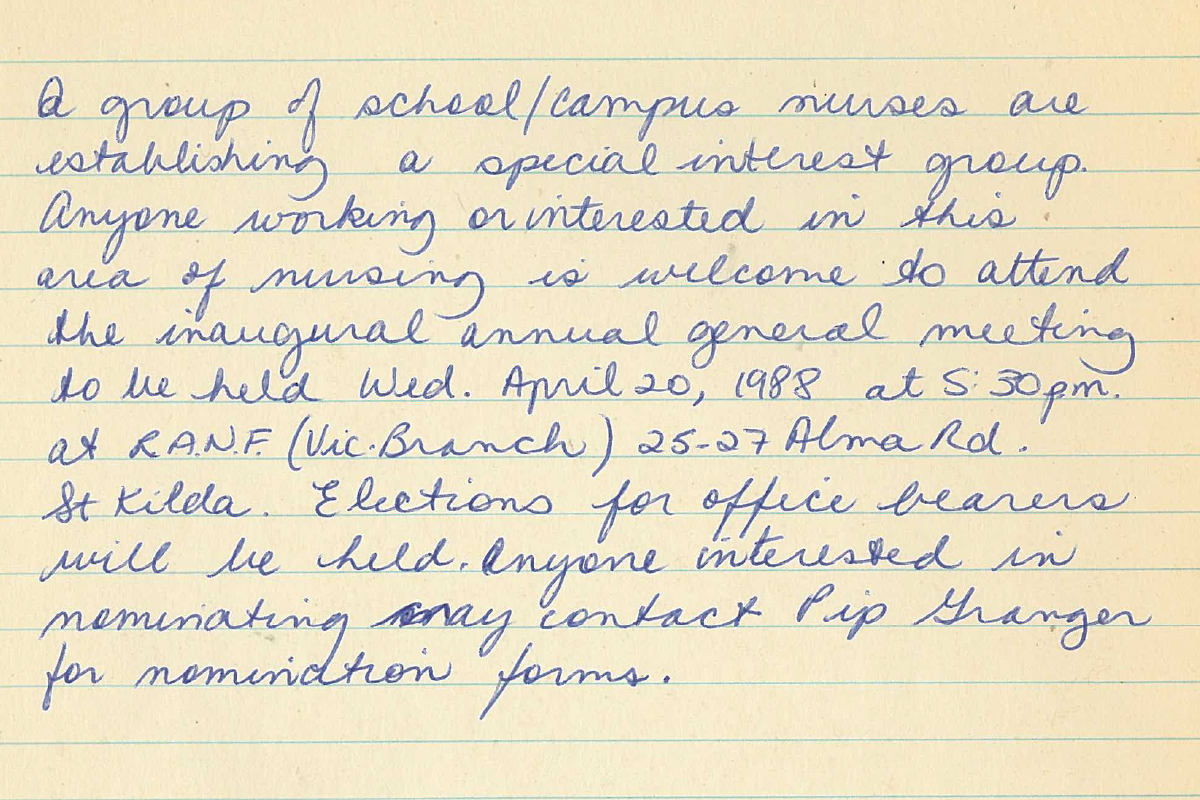 A group of school/campus nurses are
establishing a special interest group.
Anyone working or interested in this
area of nursing is welcome to attend
the inaugural annual general meeting
to be held Wed. April 20, 1988 at 5:30pm.
at R.A.N.F. (Vic. Branch) 25-27 Alma Rd.
St Kilda. Elections for office bearers
will be held. Anyone interested in
nominating may contact Pip Granger
for nomination forms.